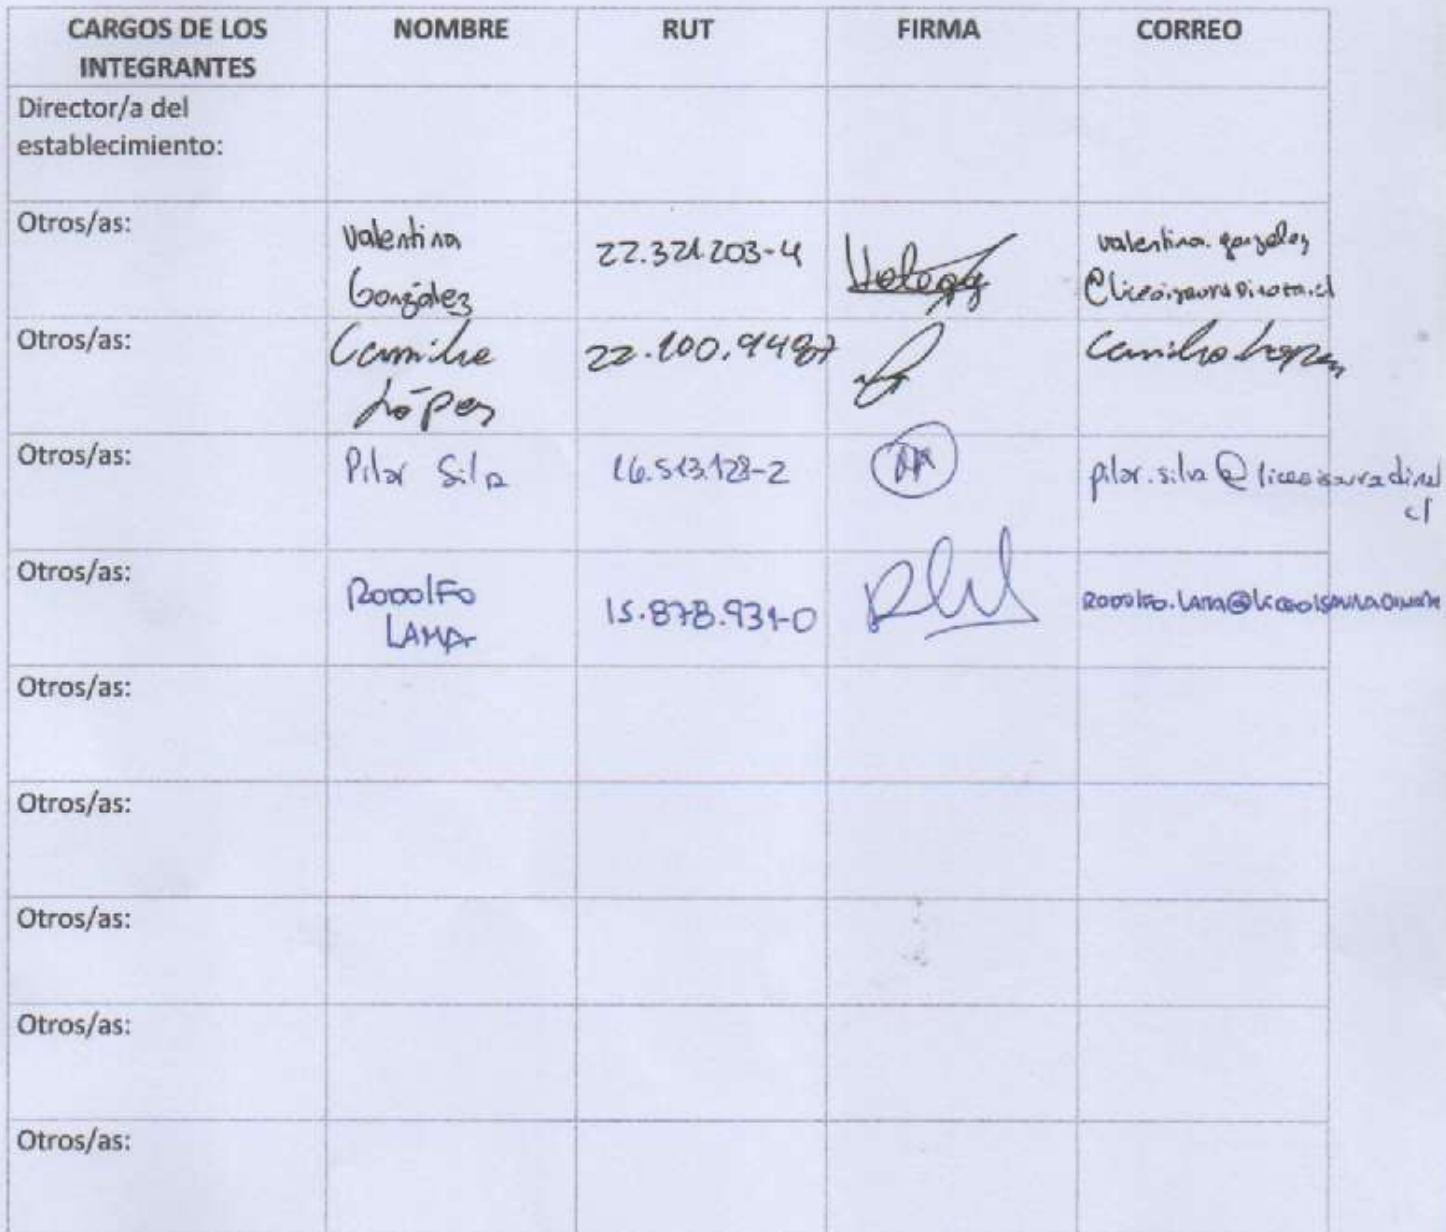 CARGOS DE LOS INTEGRANTES NOMBRE RUT FIRMA CORREO
Director/a del establecimiento:
Otros/as: Valentina González 22.321.203-4 valentina.gonzalez
Otros/as: Camilo López Camilo Lopez
Otros/as: Pilar Silva 16.513.128-2 pilar.silva@liceoisauradinat cl
Otros/as: RODOLFO LAMA 15.878.931-0
Otros/as:
Otros/as:
Otros/as:
Otros/as:
Otros/as: